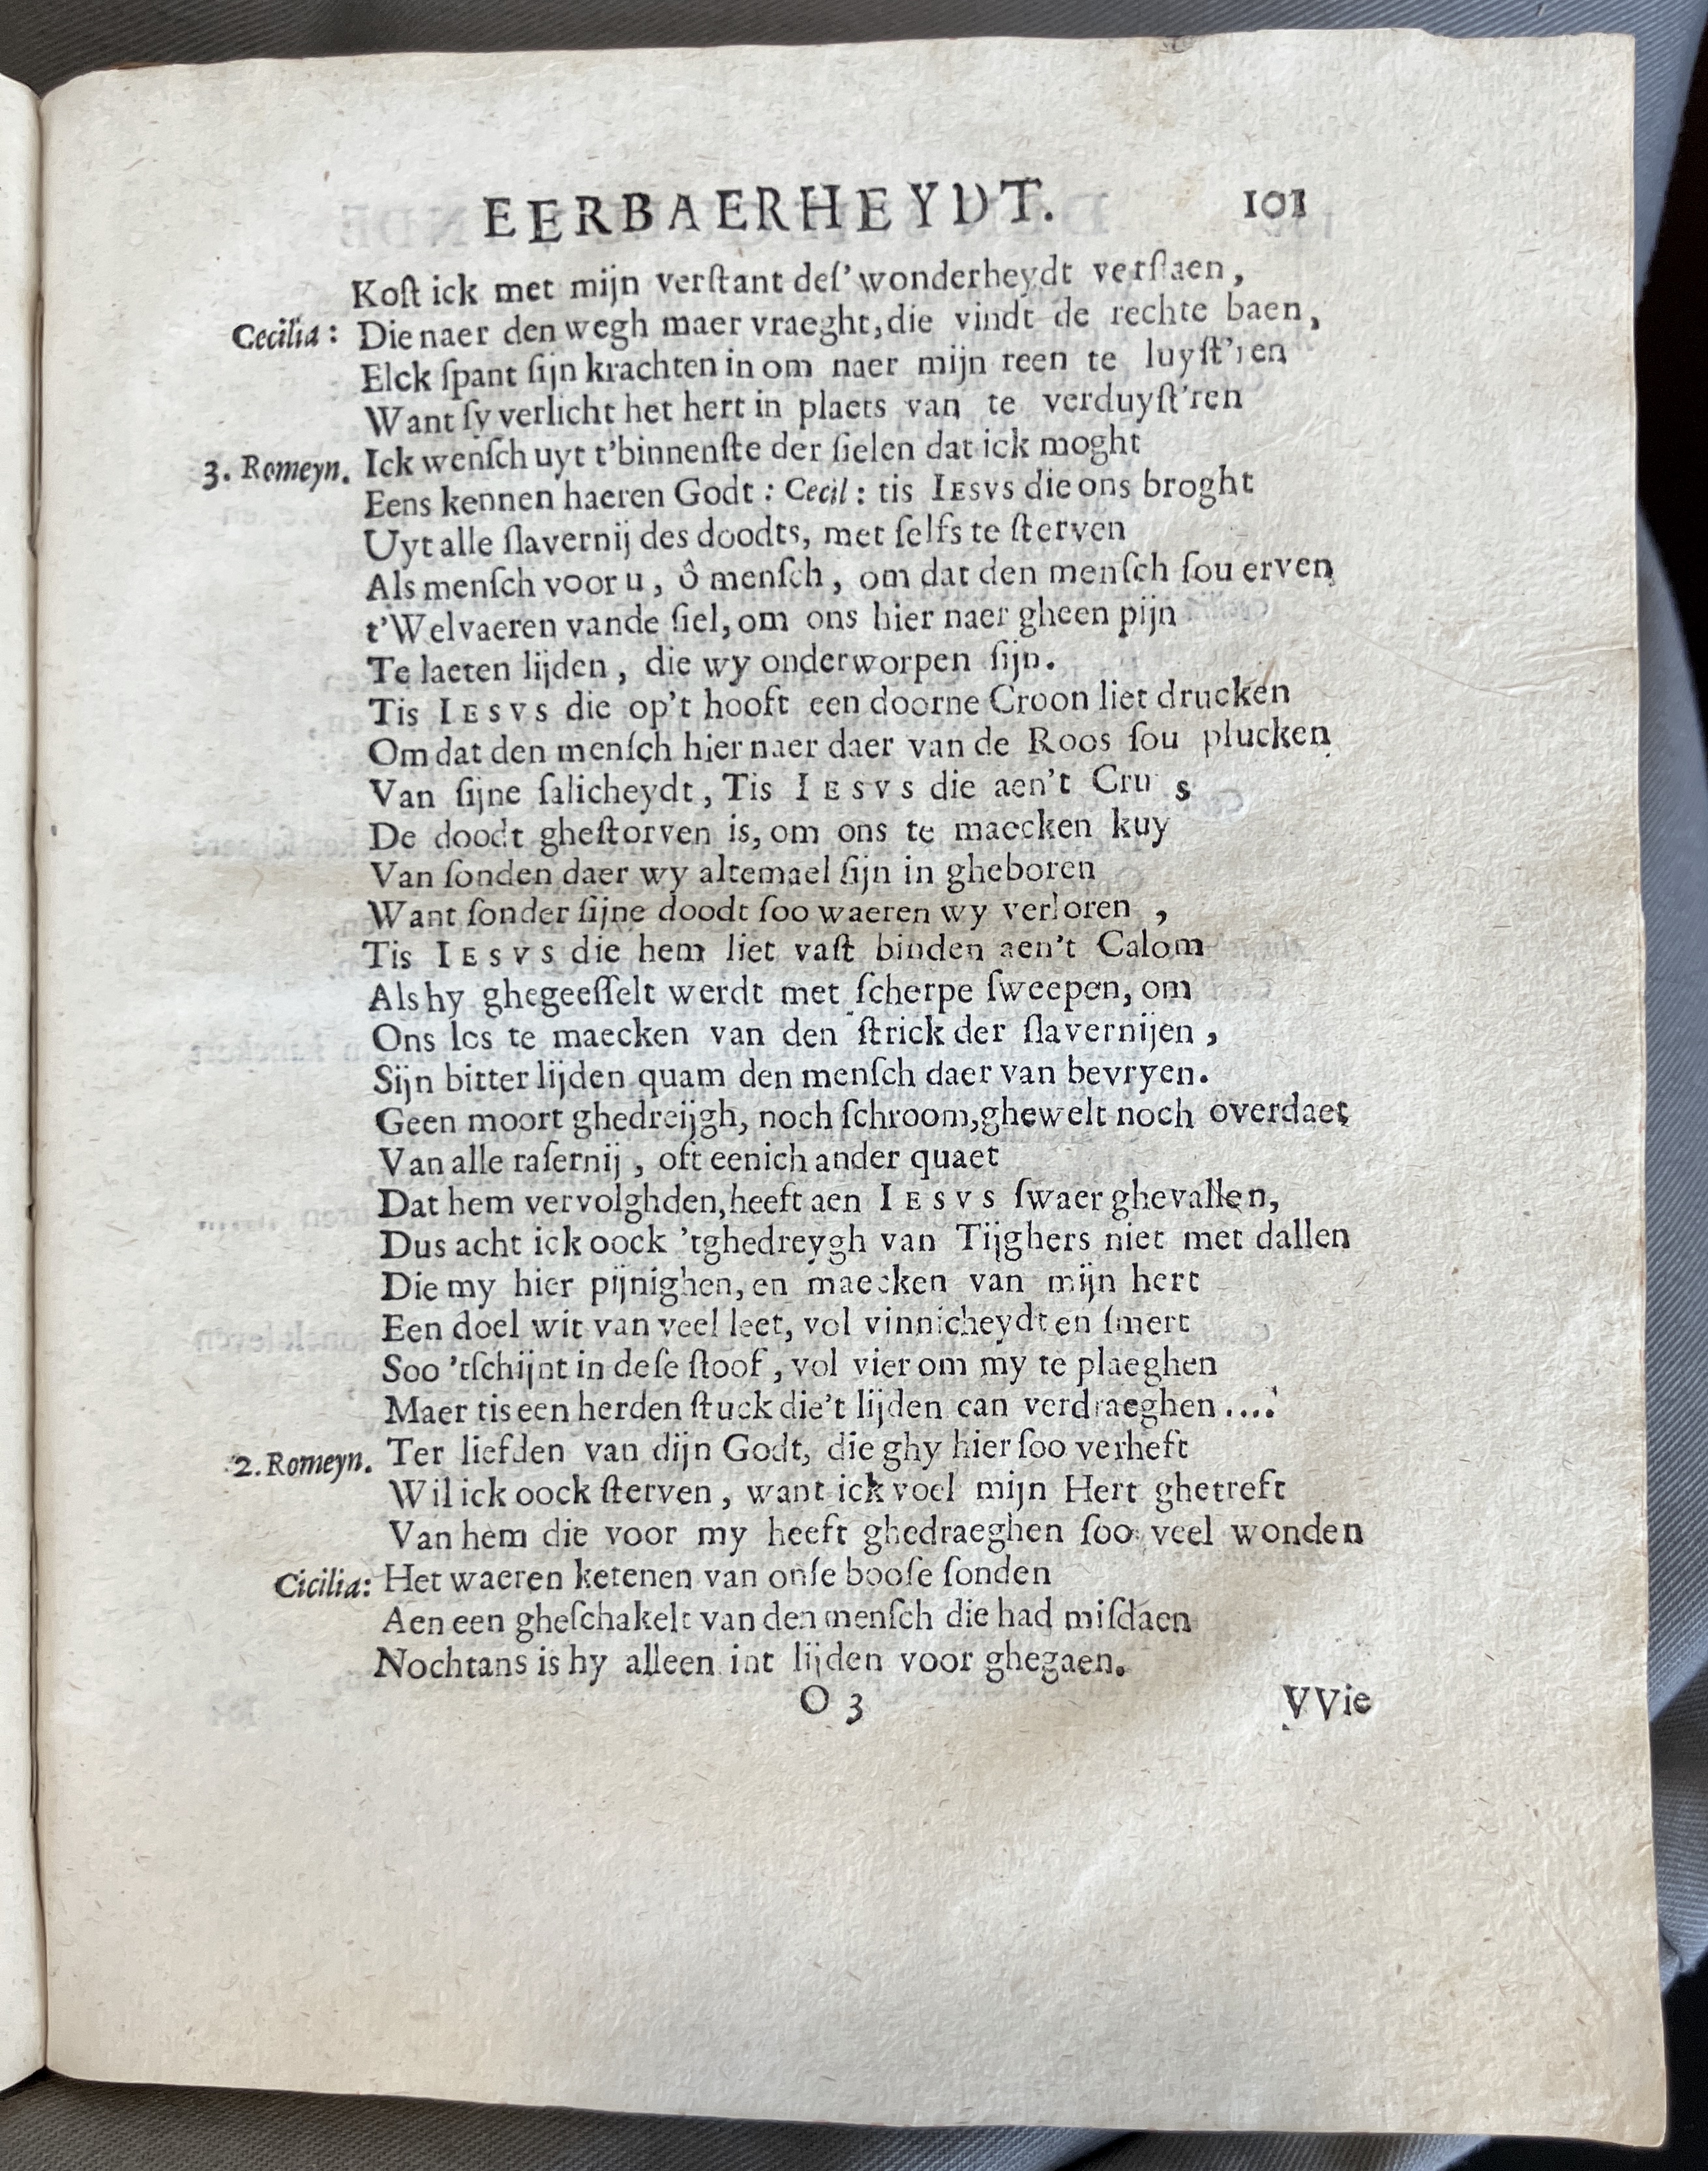 EERBAERHEYDT. 101
Koſt ick met mijn verſtant deſ' wonderheydt verſtaen,
Cecilia: Die naer den wegh maer vraeght, die vindt de rechte baen,
Elck ſpant ſijn krachten in om naer mijn reen te luyſt'ren
Want ſy verlicht het hert in plaets van te verduyſt'ren
3. Romeyn. Ick wenſch uyt t'binnenſte der ſielen dat ick moght
Eens kennen haeren Godt: Cecil: tis IESVS die ons broght
Uyt alle ſlavernij des doodts, met ſelfs te ſterven
Als menſch voor u, ô menſch, om dat den menſch ſou erven
t'Welvaeren vande ſiel, om ons hier naer gheen pijn
Te laeten lijden, die wy onderworpen ſijn.
Tis IESVS die op't hooft een doorne Croon liet drucken
Om dat den menſch hier naer daer van de Roos ſou plucken
Van ſijne ſalicheydt, Tis IESVS die aen't Cru s
De doodt gheſtorven is, om ons te maecken kuy
Van ſonden daer wy altemael ſijn in gheboren
Want ſonder ſijne doodt ſoo waeren wy verloren,
Tis IESVS die hem liet vaſt binden aen't Calom
Als hy ghegeeſſelt werdt met ſcherpe ſweepen, om
Ons los te maecken van den ſtrick der ſlavernijen,
Sijn bitter lijden quam den menſch daer van bevryen.
Geen moort ghedreijgh, noch ſchroom, ghewelt noch overdaet
Van alle raſernij, oft eenich ander quaet
Dat hem vervolghden, heeft aen IESVS ſwaer ghevallen,
Dus acht ick oock 'tghedreygh van Tijghers niet met dallen
Die my hier pijnighen, en maecken van mijn hert
Een doel wit van veel leet, vol vinnicheydt en ſmert
Soo 'tſchijnt in deſe ſtoof, vol vier om my te plaeghen
Maer tis een herden ſtuck die't lijden can verdraeghen....
2. Romeyn. Ter liefden van dijn Godt, die ghy hier ſoo verheft
Wil ick oock ſterven, want ick voel mijn Hert ghetreft
Van hem die voor my heeft ghedraeghen ſoo veel wonden
Cicilia: Het waeren ketenen van onſe booſe ſonden
Aen een gheſchakelt van den menſch die had miſdaen
Nochtans is hy alleen int lijden voor ghegaen.
O 3 VVie